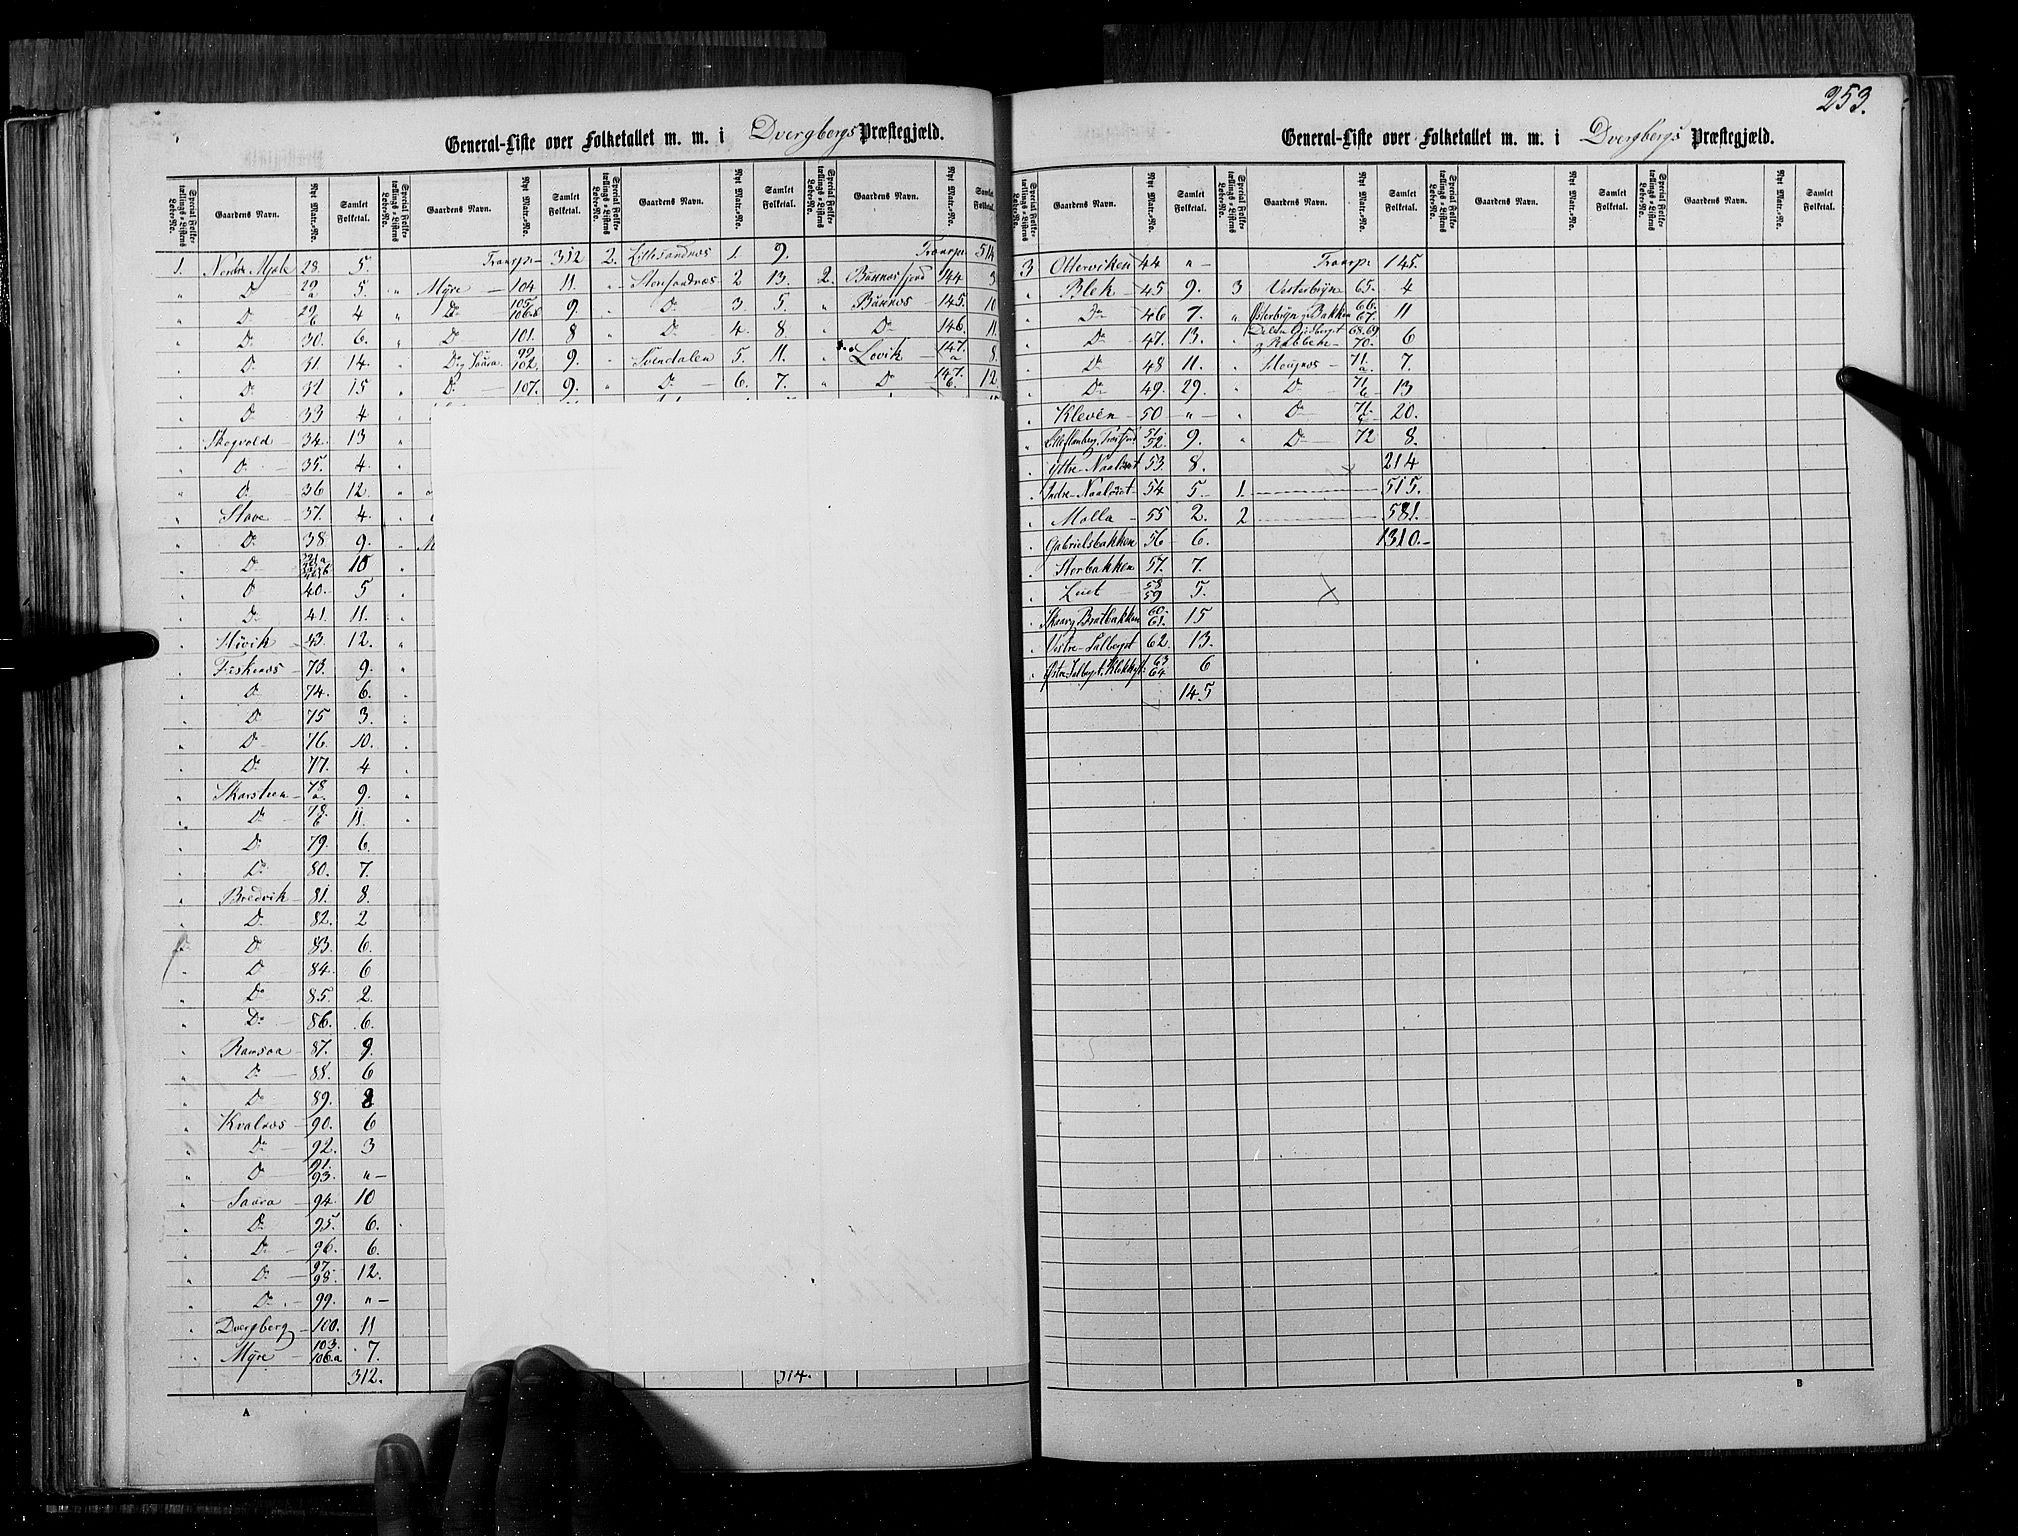 253.
General-Liste over Folketallet m. m. i Dvergbergs Præstegjæld.
Special Folketællings-Listens Løbe-No. Gaardens Navn. Nyt Matr.-No. Samlet Folketal. Special Folketællings-Listens Løbe-No. Gaardens Navn. Nyt Matr.-No. Samlet Folketal. Special Folketællings-Listens Løbe-No. Gaardens Navn. Nyt Matr.-No. Samlet Folketal. Special Folketællings-Listens Løbe-No. Gaardens Navn. Nyt Matr.-No. Samlet Folketal.
1. Nordre Mjele 28. 5. Transp. 312 2. Lillesandnæs 1. 9. Transp. 514
" Do 29 a 5. " Myre 104 11. " Storsandnæs 2 13. 2. Buknæsfjord 144 3
" Do 29 b 4 " Do 105. 106.b 9. " Do 3. 5 " Buknæs 145. 10
" Do 30. 6. " Do 101. 8 " Do 4. 8 " Do 146. 11.
" Do 31. 14 " Do g Saura 99. 102. 9. " Svendalen 5. 11. " Lovik 147. a 8.
" Do 32 15 " Do 107. 9. " Do 6. 7. " Do 147. b. 12.
" Do 33 4
" Skogvold 34. 13 "
" Do 35. 4.
" Do 36 12. "
" Stave 37. 4. "
" Do 38 9. " M
" Do 10
" Do 40. 5
" Do 41. 11.
" Høvik 43. 12. "
" Fiskenæs 73. 9. "
" Do 74. 6.
" Do 75 3.
" Do 76. 10.
" Do 77. 4
" Skarstein 78 a. 9. "
" Do 78. b 11.
" Do 79. 6.
" Do 80. 7.
" Bredvik 81. 8.
" Do 82. 2
" Do 83. 6.
" Do 84. 6
" Do 85. 2.
" Do 86. 6.
" Ramsaa 87. 9.
" Do 88. 6
" Do 89. 8
" Kvalnæs 90. 6
" Do 92. 3
" Do 91. 93. "
" Saura 94. 10
" Do 95. 6.
" Do 96. 6.
" Do 97. 98. 12.
" Do 99. "
" Dvergberg 100. 11
" Myre 103. 106.a 7.
312. 514.
A
General-Liste over Folketallet m. m. i Dvergbergs Præstegjæld.
Special Folketællings-Listens Løbe-No. Gaardens Navn. Nyt Matr.-No. Samlet Folketal. Special Folketællings-Listens Løbe-No. Gaardens Navn. Nyt Matr.-No. Samlet Folketal. Special Folketællings-Listens Løbe-No. Gaardens Navn. Nyt Matr.-No. Samlet Folketal. Special Folketællings-Listens Løbe-No. Gaardens Navn. Nyt Matr.-No. Samlet Folketal.
3 Otterviken 44 " Transp. 145.
" Blek 45 9. 3 Vesterbyn 65. 4
" Do 46 7. " Østerbyn g Bakken 66. 67. 11
" Do 47. 13. " 68. 69 70. 6
" Do 48 11. " Hougnæs 71 a 7.
" Do 49. 29. " Do 71 b 13
" Kleven 50 " " Do 71. c 20.
" 51. 52. 9. " Do 72 8.
" Ytre Naalsvet 53 8. 214
" Indre Naalsvet 54 5 1. 515.
" Molla 55 2. 2 581.
" Gabrielsbakken 56 6. 1310.
" Storbakken 57. 7.
" 58 59 5.
" Skaar g Bratbakken 60. 61. 15
" Vestre 62. 13.
" Østre 63 64 6
145
B